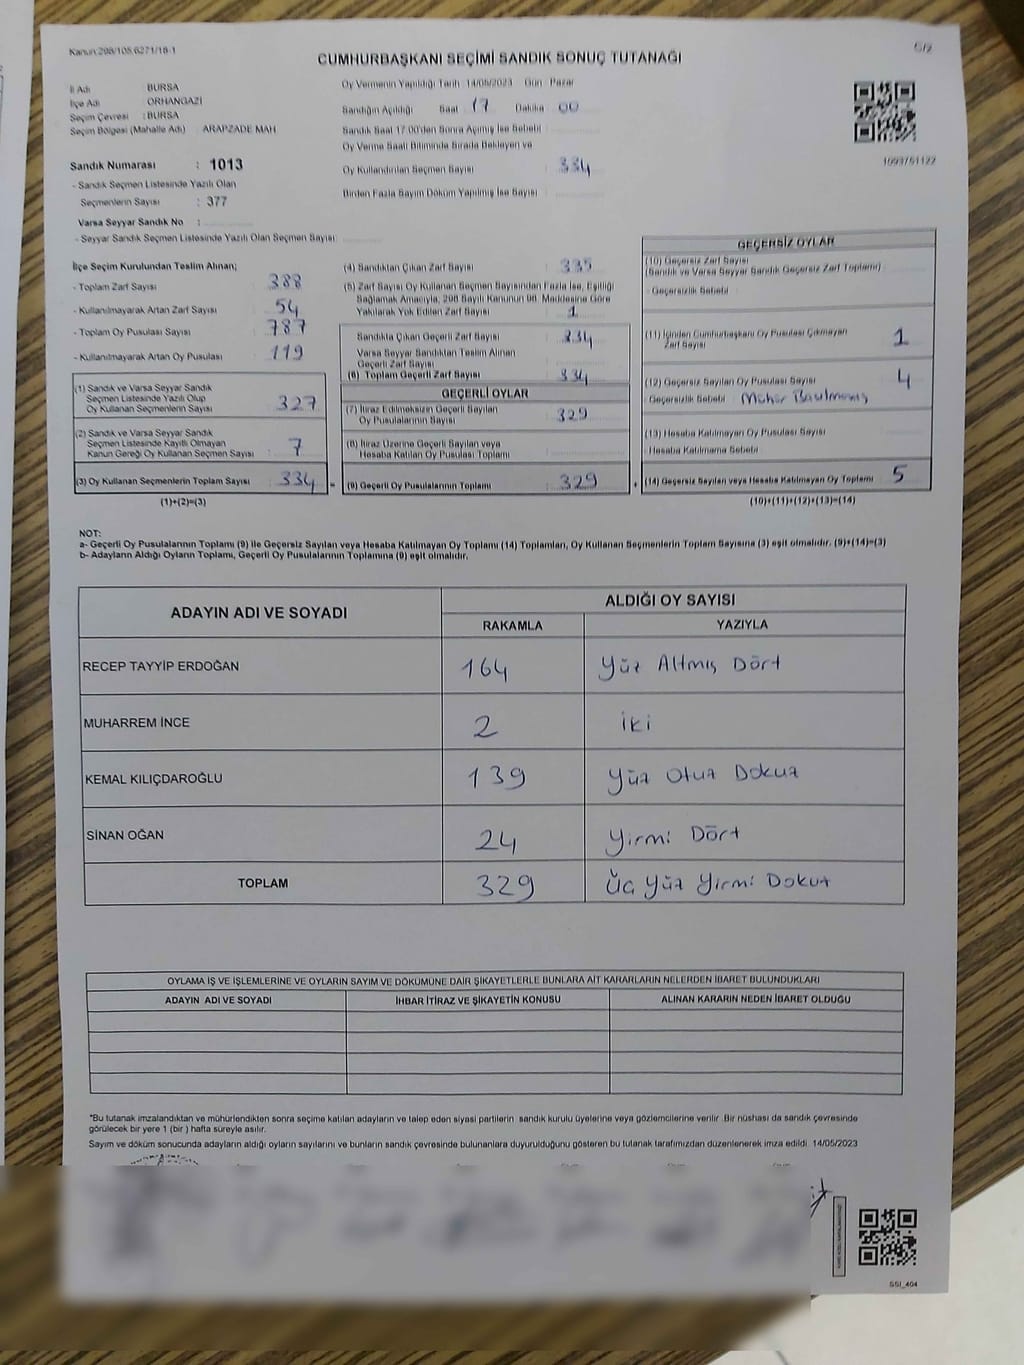 Kanun:298/105,6271/18-1
CUMHURBAŞKANI SEÇİMİ SANDIK SONUÇ TUTANAĞI
İl Adı : BURSA
İlçe Adı : ORHANGAZİ
Seçim Çevresi : BURSA
Seçim Bölgesi (Mahalle Adı) : ARAPZADE MAH
Sandık Numarası : 1013
- Sandık Seçmen Listesinde Yazılı Olan
Seçmenlerin Sayısı : 377
Varsa Seyyar Sandık No :
- Seyyar Sandık Seçmen Listesinde Yazılı Olan Seçmen Sayısı:
Oy Vermenin Yapıldığı Tarih 14/05/2023 Gün : Pazar
Sandığın Açıldığı Saat 17 Dakika 00
Sandık Saat 17.00'den Sonra Açılmış İse Sebebi :
Oy Verme Saati Bitiminde Sırada Bekleyen ve
Oy Kullandırılan Seçmen Sayısı : 334
Birden Fazla Sayım Döküm Yapılmış İse Sayısı :
1093751122
İlçe Seçim Kurulundan Teslim Alınan;
- Toplam Zarf Sayısı : 388
- Kullanılmayarak Artan Zarf Sayısı : 54
- Toplam Oy Pusulası Sayısı : 787
- Kullanılmayarak Artan Oy Pusulası : 119
(1) Sandık ve Varsa Seyyar Sandık
Seçmen Listesinde Yazılı Olup
Oy Kullanan Seçmenlerin Sayısı : 327
(2) Sandık ve Varsa Seyyar Sandık
Seçmen Listesinde Kayıtlı Olmayan
Kanun Gereği Oy Kullanan Seçmen Sayısı : 7
(3) Oy Kullanan Seçmenlerin Toplam Sayısı : 334
(1)+(2)=(3)
(4) Sandıktan Çıkan Zarf Sayısı : 335
(5) Zarf Sayısı Oy Kullanan Seçmen Sayısından Fazla İse, Eşitliği
Sağlamak Amacıyla, 298 Sayılı Kanunun 98. Maddesine Göre
Yakılarak Yok Edilen Zarf Sayısı : 1
Sandıkta Çıkan Geçerli Zarf Sayısı : 334
Varsa Seyyar Sandıktan Teslim Alınan
Geçerli Zarf Sayısı
(6) Toplam Geçerli Zarf Sayısı : 334
GEÇERLİ OYLAR
(7) İtiraz Edilmeksizin Geçerli Sayılan
Oy Pusulalarının Sayısı : 329
(8) İtiraz Üzerine Geçerli Sayılan veya
Hesaba Katılan Oy Pusulası Toplamı :
(9) Geçerli Oy Pusulalarının Toplamı : 329
GEÇERSİZ OYLAR
(10) Geçersiz Zarf Sayısı
(Sandık ve Varsa Seyyar Sandık Geçersiz Zarf Toplamı)
- Geçersizlik Sebebi :
(11) İçinden Cumhurbaşkanı Oy Pusulası Çıkmayan
Zarf Sayısı 1
(12) Geçersiz Sayılan Oy Pusulası Sayısı 4
- Geçersizlik Sebebi : Mühür Basılmamış
(13) Hesaba Katılmayan Oy Pusulası Sayısı
- Hesaba Katılmama Sebebi
(14) Geçersiz Sayılan veya Hesaba Katılmayan Oy Toplamı 5
(10)+(11)+(12)+(13)=(14)
NOT:
a- Geçerli Oy Pusulalarının Toplamı (9) ile Geçersiz Sayılan veya Hesaba Katılmayan Oy Toplamı (14) Toplamları, Oy Kullanan Seçmenlerin Toplam Sayısına (3) eşit olmalıdır. (9)+(14)=(3)
b- Adayların Aldığı Oyların Toplamı, Geçerli Oy Pusulalarının Toplamına (9) eşit olmalıdır.
ADAYIN ADI VE SOYADI ALDIĞI OY SAYISI
RAKAMLA YAZIYLA
RECEP TAYYİP ERDOĞAN 164 Yüz Altmış Dört
MUHARREM İNCE 2 iki
KEMAL KILIÇDAROĞLU 139 Yüz Otuz Dokuz
SİNAN OĞAN 24 Yirmi Dört
TOPLAM 329 Üç Yüz Yirmi Dokuz
OYLAMA İŞ VE İŞLEMLERİNE VE OYLARIN SAYIM VE DÖKÜMÜNE DAİR ŞİKAYETLERLE BUNLARA AİT KARARLARIN NELERDEN İBARET BULUNDUKLARI
ADAYIN ADI VE SOYADI İHBAR İTİRAZ VE ŞİKAYETİN KONUSU ALINAN KARARIN NEDEN İBARET OLDUĞU
*Bu tutanak imzalandıktan ve mühürlendikten sonra seçime katılan adayların ve talep eden siyasi partilerin sandık kurulu üyelerine veya gözlemcilerine verilir. Bir nüshası da sandık çevresinde
görülecek bir yere 1 (bir) hafta süreyle asılır.
Sayım ve döküm sonucunda adayların aldığı oyların sayılarını ve bunların sandık çevresinde bulunanlara duyurulduğunu gösteren bu tutanak tarafımızdan düzenlenerek imza edildi. 14/05/2023
SSI_404